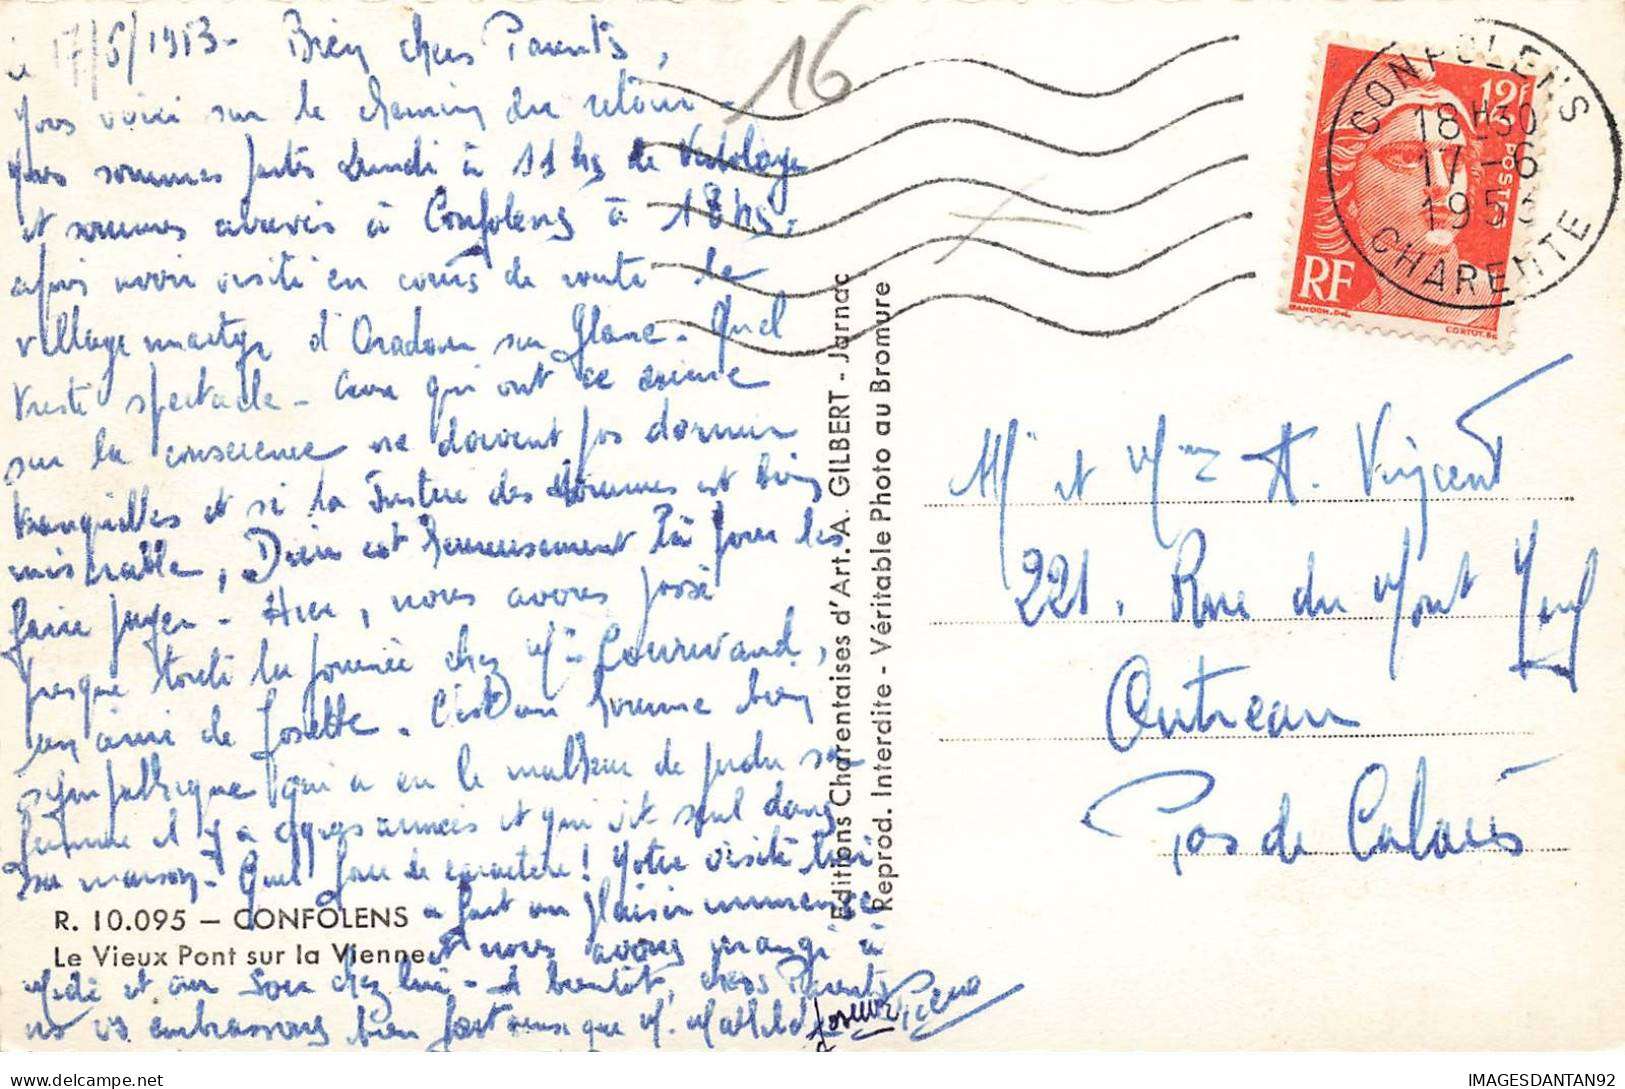 le 17/6/1953 - Bien chers Parents,
Nous voici sur le chemin du retour -
Nous sommes partis Lundi à 11 hs de
et sommes arrivés à Confolens à 18 hs,
après avoir visité en cours de route le
village martyr d'Oradour sur Glane. Quel
triste spectacle - Ceux qui ont ce crime
sur la conscience ne doivent pas dormir
tranquilles et si la Justice des Hommes est bien
misérable, Dieu est heureusement là pour les
faire payer - Hier, nous avons passé
presque toute la journée chez Mr
un ami de Josette. C'est un homme bien
sympathique qui a eu le malheur de perdre sa
femme il y a années et qui vit seul dans
sa maison - Quel de caractère ! Notre visite lui
a fait un plaisir immense
et nous avons mangé à
Midi et au Soir chez lui - A bientôt, chers Parents
ns vs embrassons bien fort ainsi que M. Mathilde
Pierre
16
CONFOLENS
18H30
17-6
1953
CHARENTE
12F
POSTES
RF
GANDON.DEL.
CORTOT.SC
Mr et Mme A. Vincent
221, Rue du Mont Neuf
Outreau
Pas de Calais
Editions Charentaises d'Art. A. GILBERT - Jarnac
Reprod. Interdite - Véritable Photo au Bromure
R. 10.095 — CONFOLENS
Le Vieux Pont sur la Vienne
IMAGESDANTAN92